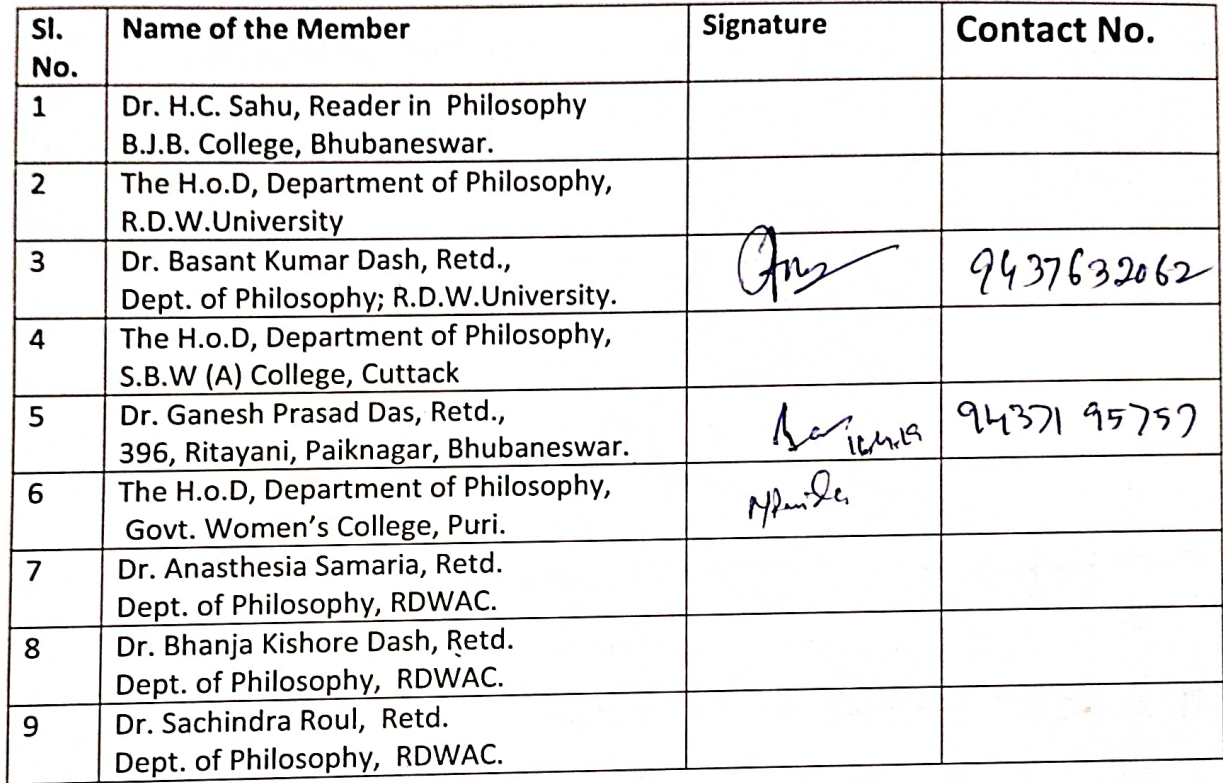 Sl. No. Name of the Member Signature Contact No.
1 Dr. H.C. Sahu, Reader in Philosophy
B.J.B. College, Bhubaneswar.
2 The H.o.D, Department of Philosophy,
R.D.W.University
3 Dr. Basant Kumar Dash, Retd., 9437632062
Dept. of Philosophy; R.D.W.University.
4 The H.o.D, Department of Philosophy,
S.B.W (A) College, Cuttack
5 Dr. Ganesh Prasad Das, Retd., 94371 95757
396, Ritayani, Paiknagar, Bhubaneswar. 16.4.19
6 The H.o.D, Department of Philosophy,
Govt. Women's College, Puri.
7 Dr. Anasthesia Samaria, Retd.
Dept. of Philosophy, RDWAC.
8 Dr. Bhanja Kishore Dash, Retd.
Dept. of Philosophy, RDWAC.
9 Dr. Sachindra Roul, Retd.
Dept. of Philosophy, RDWAC.